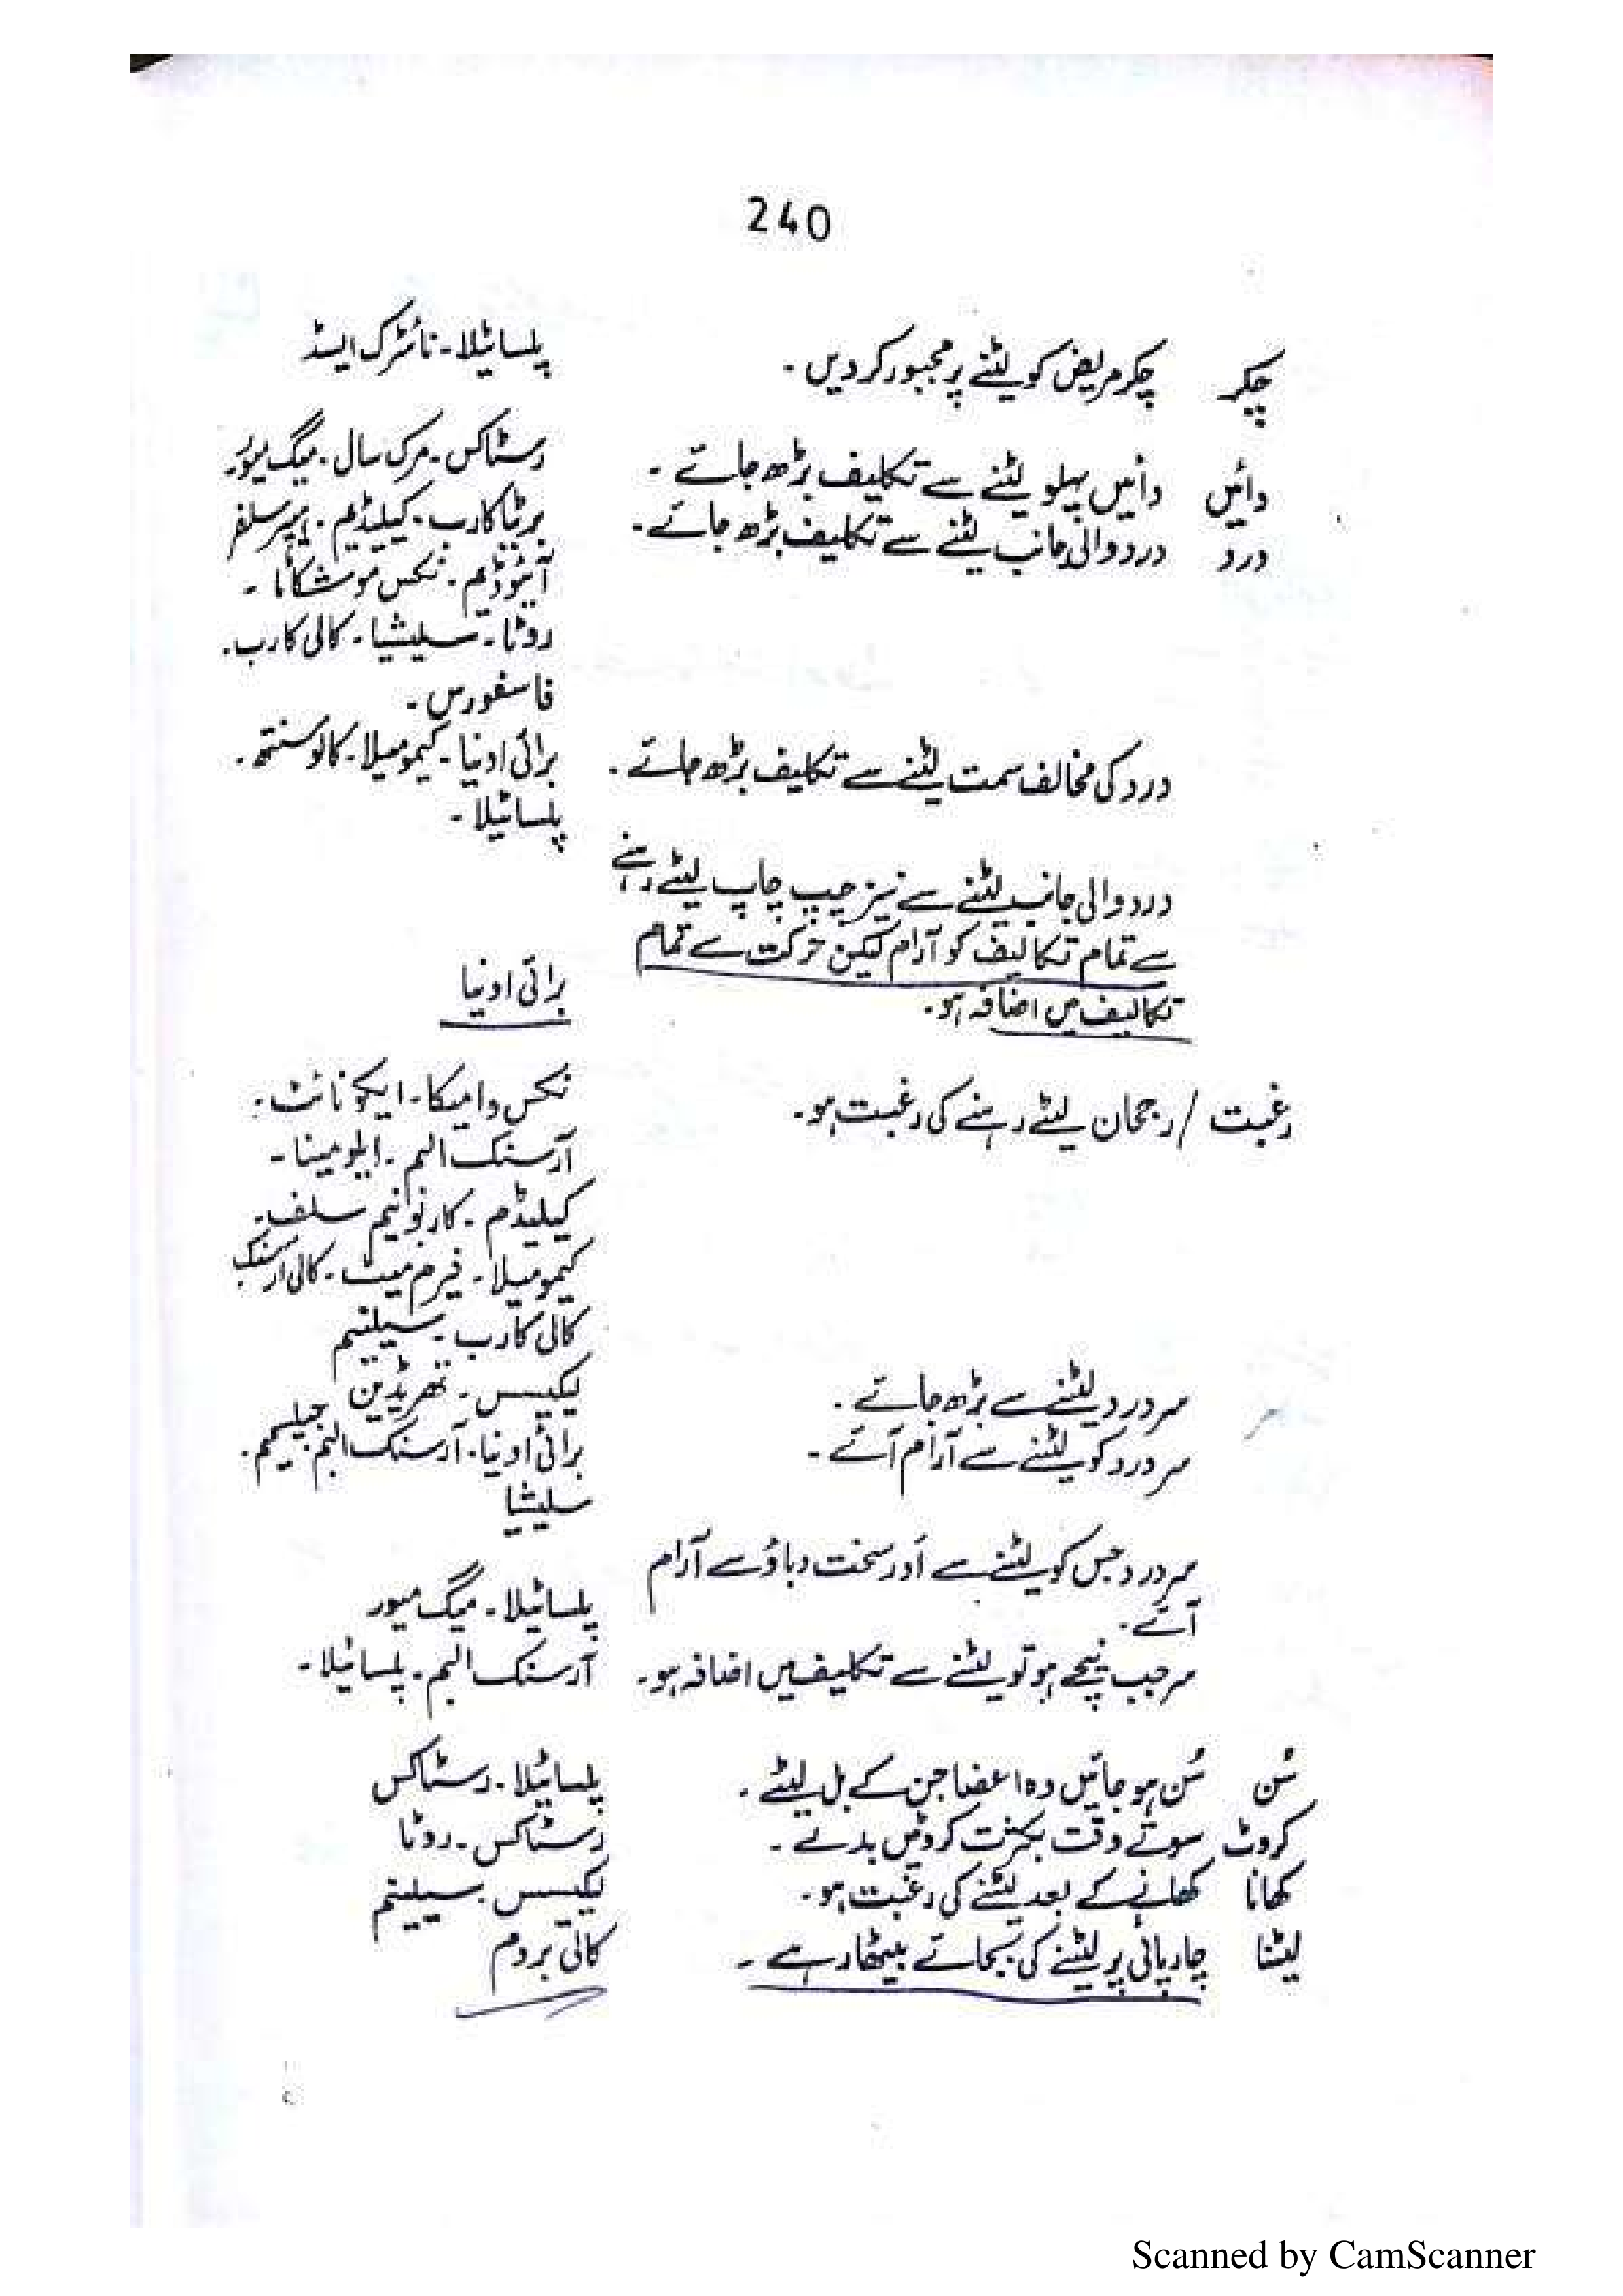 240
چکر چکر مریض کو لیٹنے پر مجبور کر دیں۔ پلساٹیلا۔ نائٹرک ایسڈ
دائیں دائیں پہلو لیٹنے سے تکلیف بڑھ جائے۔ رسٹاکس۔ مرک سال۔ میگ میور۔
درد درد والی جانب لیٹنے سے تکلیف بڑھ جائے۔ برٹیا کارب۔ کیلیڈیم۔ ہیپر سلفر
آئیوڈیم۔ نکس موشکاٹا۔
روٹا۔ سلیشیا۔ کالی کارب۔
فاسفورس۔
درد کی مخالف سمت لیٹنے سے تکلیف بڑھ جائے۔ برائی اونیا۔ کیمومیلا۔ کالوسنتھ۔
پلساٹیلا۔
درد والی جانب لیٹنے سے نیز چپ چاپ لیٹے رہنے
سے تمام تکالیف کو آرام لیکن حرکت سے تمام
تکالیف میں اضافہ ہو۔ برائی اونیا
رغبت / رجحان لیٹے رہنے کی رغبت ہو۔ نکس وامیکا۔ ایکونائٹ۔
آرسنک البم۔ ایلومینا۔
کیلیڈم۔ کاربونیم سلف۔
کیمومیلا۔ فیرم میٹ۔ کالی آرسنک
کالی کارب۔ سیلینیم
سر درد لیٹنے سے بڑھ جائے۔ لیکیسس۔ تھریڈین
سر درد کو لیٹنے سے آرام آئے۔ برائی اونیا۔ آرسنک البم۔ جیلسیمم۔
سلیشیا
سر درد جس کو لیٹنے سے اور سخت دباؤ سے آرام
آئے۔ پلساٹیلا۔ میگ میور
سر جب نیچے ہو تو لیٹنے سے تکلیف میں اضافہ ہو۔ آرسنک البم۔ پلساٹیلا۔
سُن سُن ہو جائیں وہ اعضا جن کے بل لیٹے۔ پلساٹیلا۔ رسٹاکس
کروٹ سوتے وقت بکثرت کروٹیں بدلے۔ رسٹاکس۔ روٹا
کھانا کھانے کے بعد لیٹنے کی رغبت ہو۔ لیکیسس۔ سیلینیم
لیٹنا چارپائی پر لیٹنے کی بجائے بیٹھا رہے۔ کالی بروم
Scanned by CamScanner